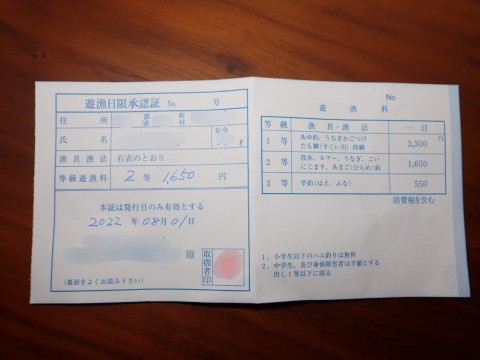 遊漁日限承認証 No. 号
住所 郡 市 町 村
氏名 年令 才
漁具漁法 右表のとおり
等級遊漁料 2等 1,650円
本証は発行日のみ有効とする
2022年08月01日
印 取扱者印
(裏面をよくお読み下さい)
No
遊漁料
等級 漁具・漁法 一日
1等 あゆ釣、うなぎかごつけ 3,300円
たも網(すくい川)投網
2等 投糸、ルアー、うなぎ、こい 1,650
にじます、あまご(ひらめ)釣
3等 竿釣(はえ、ふな) 550
消費税を含む
1、小学生以下のハエ釣りは無料
2、中学生、及び身体障害者は半額とする
但し1等以下に限る